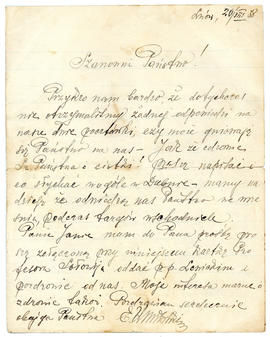 Lwów, 20/VIII 38
Szanowni Państwo!
Przykro nam bardzo, że dotychczas
nie otrzymaliśmy żadnej odpowiedzi na
nasze dwie pocztówki, czy może gniewają
się Państwo na nas – Jak ze zdrowie
Państwa i
co słychać wogóle w – mamy na
dzieję że odwiedzą nas Państwo we
podczas targów wschodnich
Panie mam do Pana prośbę pro
szę załączoną przy niniejszem kartkę Pro
fesora oddać p. p. i
pozdrowić od nas. Moje interesa marne i
zdrowie także. Pozdrawiam serdecznie
oboje Państwa